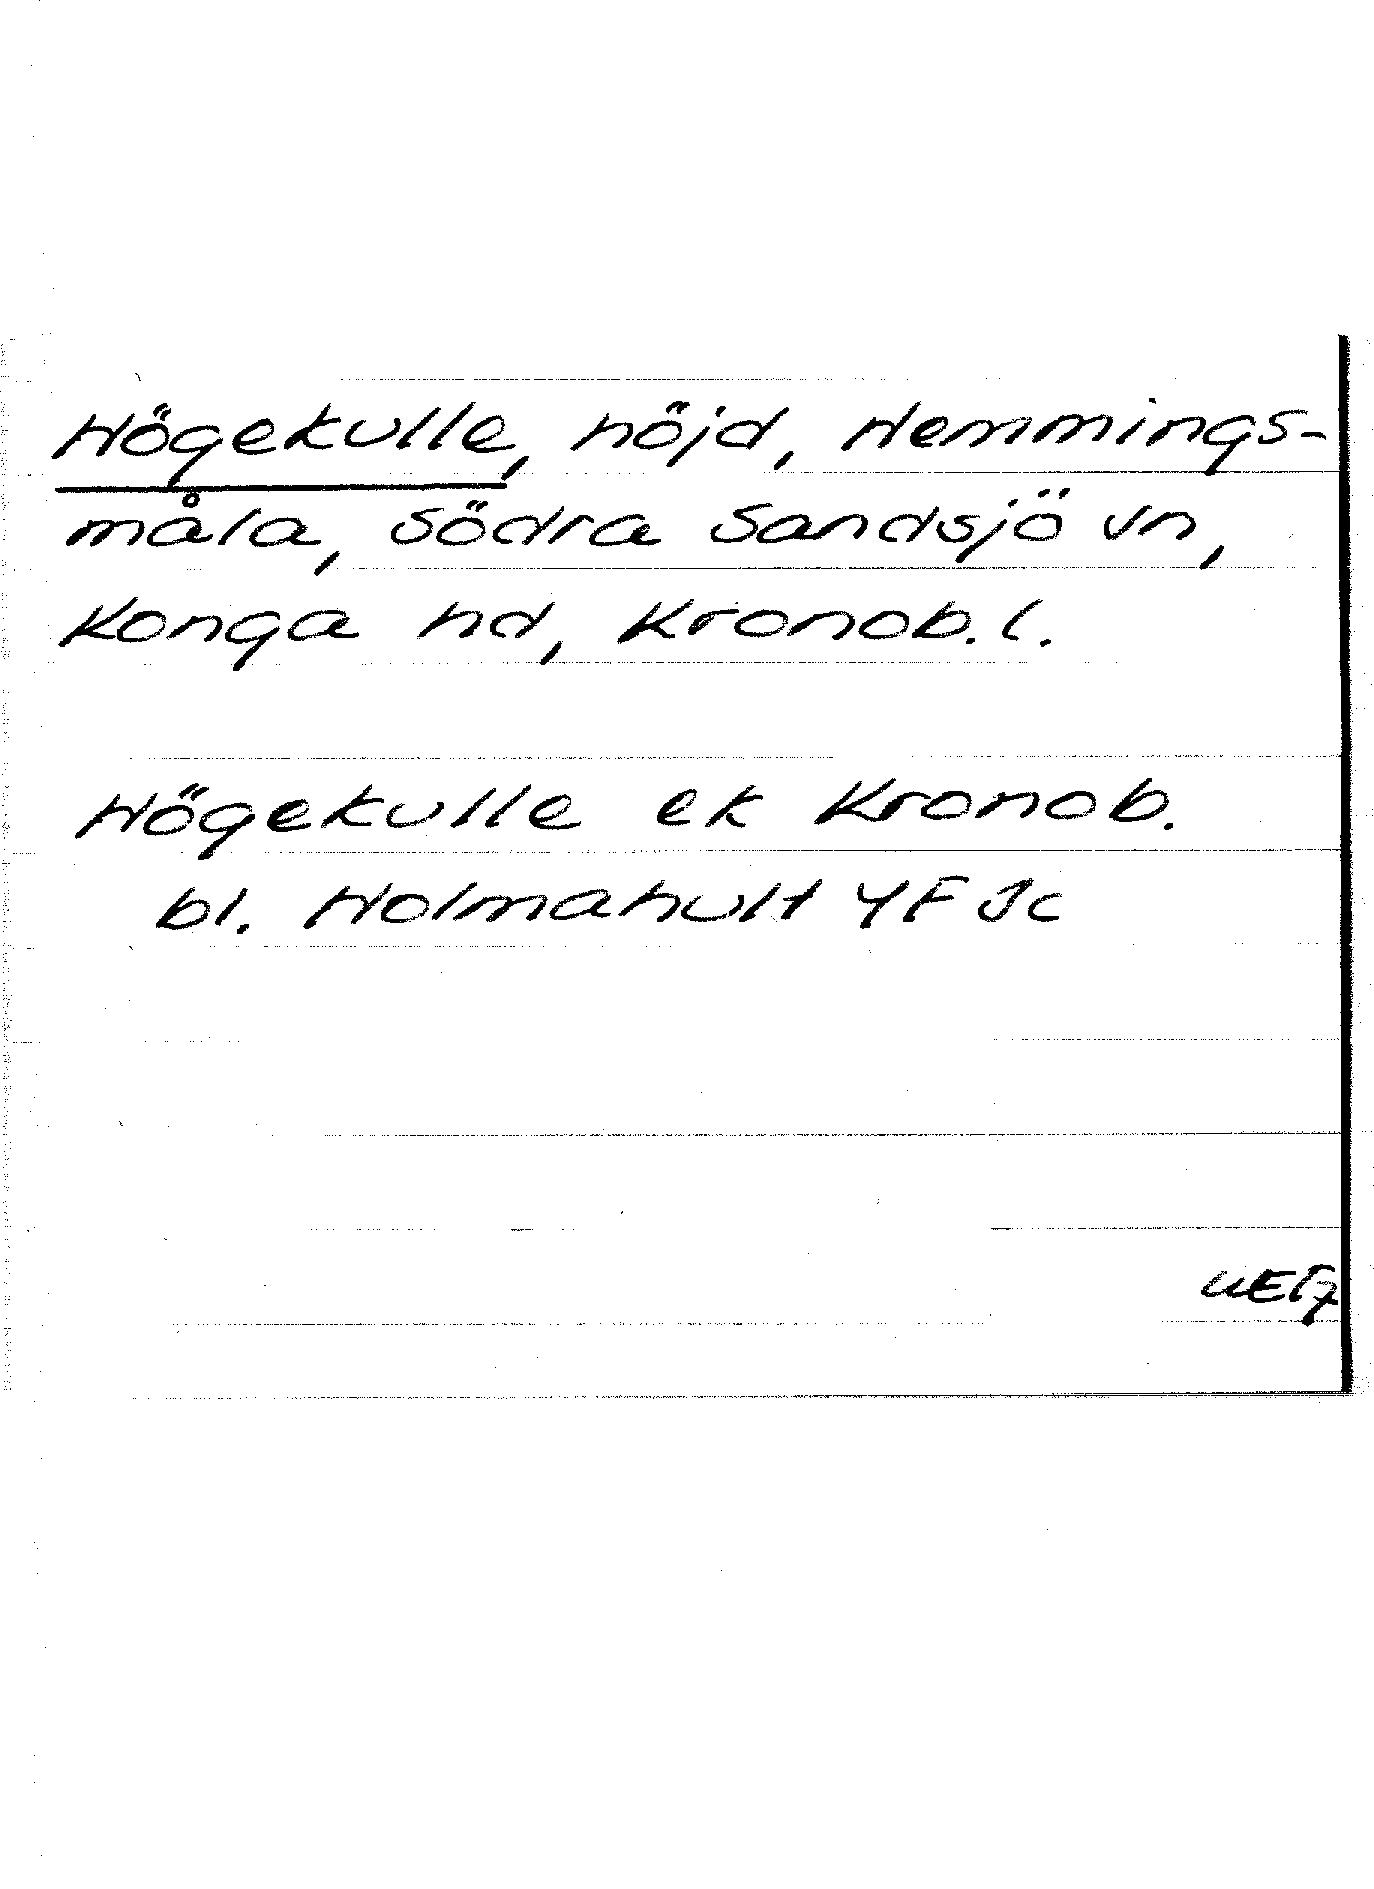 Högekulle, höjd, Hemmings-
måla, Södra Sandsjö sn,
Konga hd, Kronob. l.
Högekulle ek Kronob.
bl. Holmahult 4F Jc